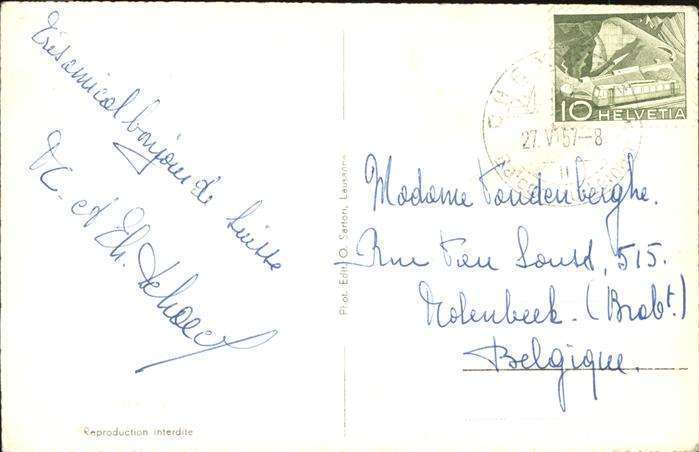 Très amical bonjour de Suisse
et Th.
Reproduction interdite
Phot. Edit. O. Sartori, Lausanne
10 HELVETIA
27.VI.57-8
Madame Vandenberghe.
Rue Van Soust, 515.
Molenbeek. (Brabt.)
Belgique.